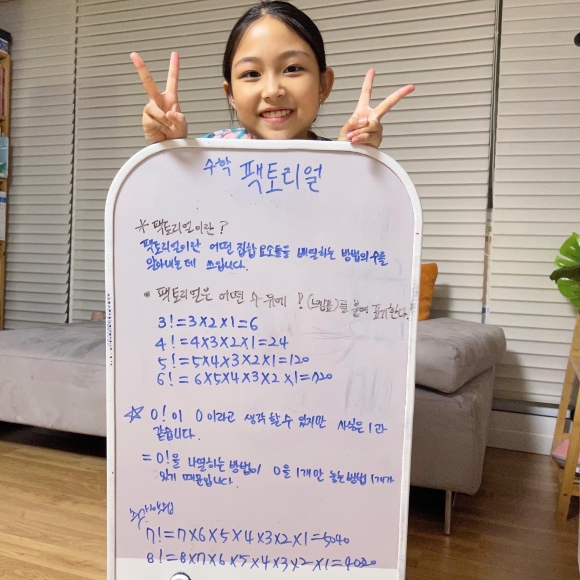 수학 팩토리얼
* 팩토리얼이란?
팩토리얼이란 어떤 집합 요소들을 배열하는 방법의 수를
알아내는데 쓰입니다.
• 팩토리얼은 어떤 수 뒤에 ! (느낌표)를 붙여 표기한다.
3! = 3×2×1=6
4! = 4×3×2×1=24
5! = 5×4×3×2×1=120
6! = 6×5×4×3×2×1=720
☆ 0!이 0이라고 생각할 수 있지만 사실은 1과
같습니다.
= 0!을 나열하는 방법이 0을 1개만 놓는 방법 1개가
있기 때문입니다.
7! = 7×6×5×4×3×2×1=5040
8! = 8×7×6×5×4×3×2×1=4020